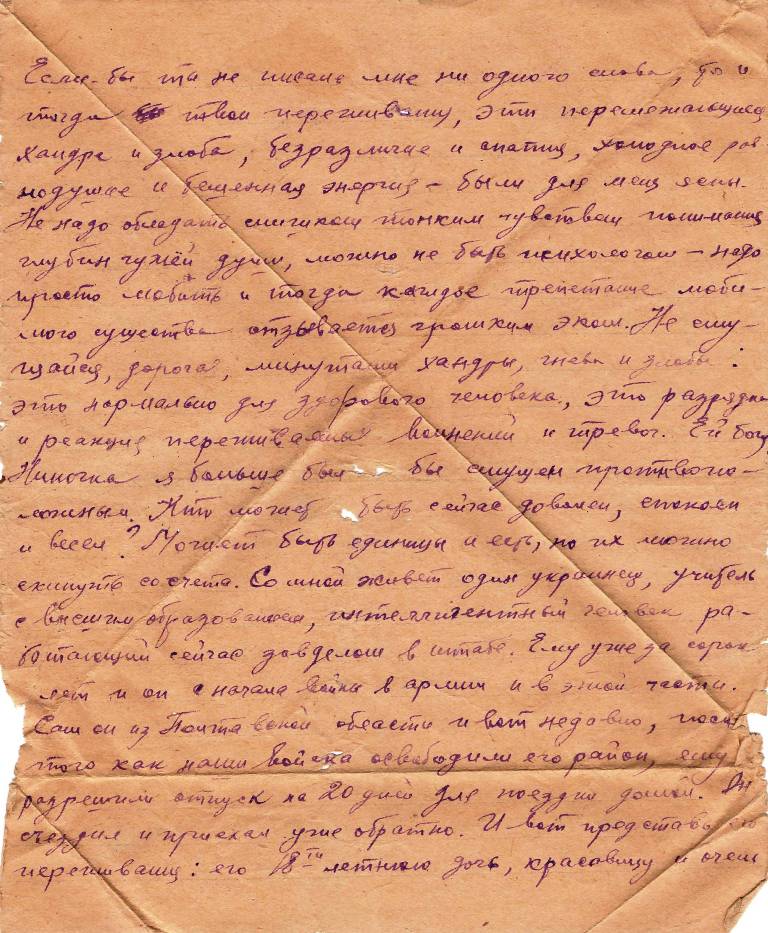 Если-бы ты не писала мне ни одного слова, то и
тогда твои переживания, эти перемежающиеся
хандра и злоба, безразличие и апатия, холодное рав-
нодушие и бешенная энергия – были для меня ясны.
Не надо обладать слишком тонким чувством понимания
глубин чужой души, можно не быть психологом – надо
просто любить и тогда каждое трепетание люби-
мого существа отзывается громким эхом. Не сму-
щайся, дорогая, минутами хандры, гнева и злобы:
это нормально для здорового человека, это разрядка
и реакция переживаемых волнений и тревог. Ей богу
Ниночка я больше был бы смущен противопо-
ложным. Кто может быть сейчас доволен, спокоен
и весел? Может быть единицы и есть, но их можно
скинуть со счета. Со мной живет один украинец, учитель
с высшим образованием, интеллигентный человек ра-
ботающий сейчас завделом в штабе. Ему уже за сорок
лет и он с начала войны в армии и в этой части.
Сам он из Полтавской области и вот недавно, после
того как наши войска освободили его район, ему
разрешили отпуск на 20 дней для поездки домой. Он
съездил и приехал уже обратно. И вот представь его
переживания: его 18ти летнюю дочь, красавицу и очень